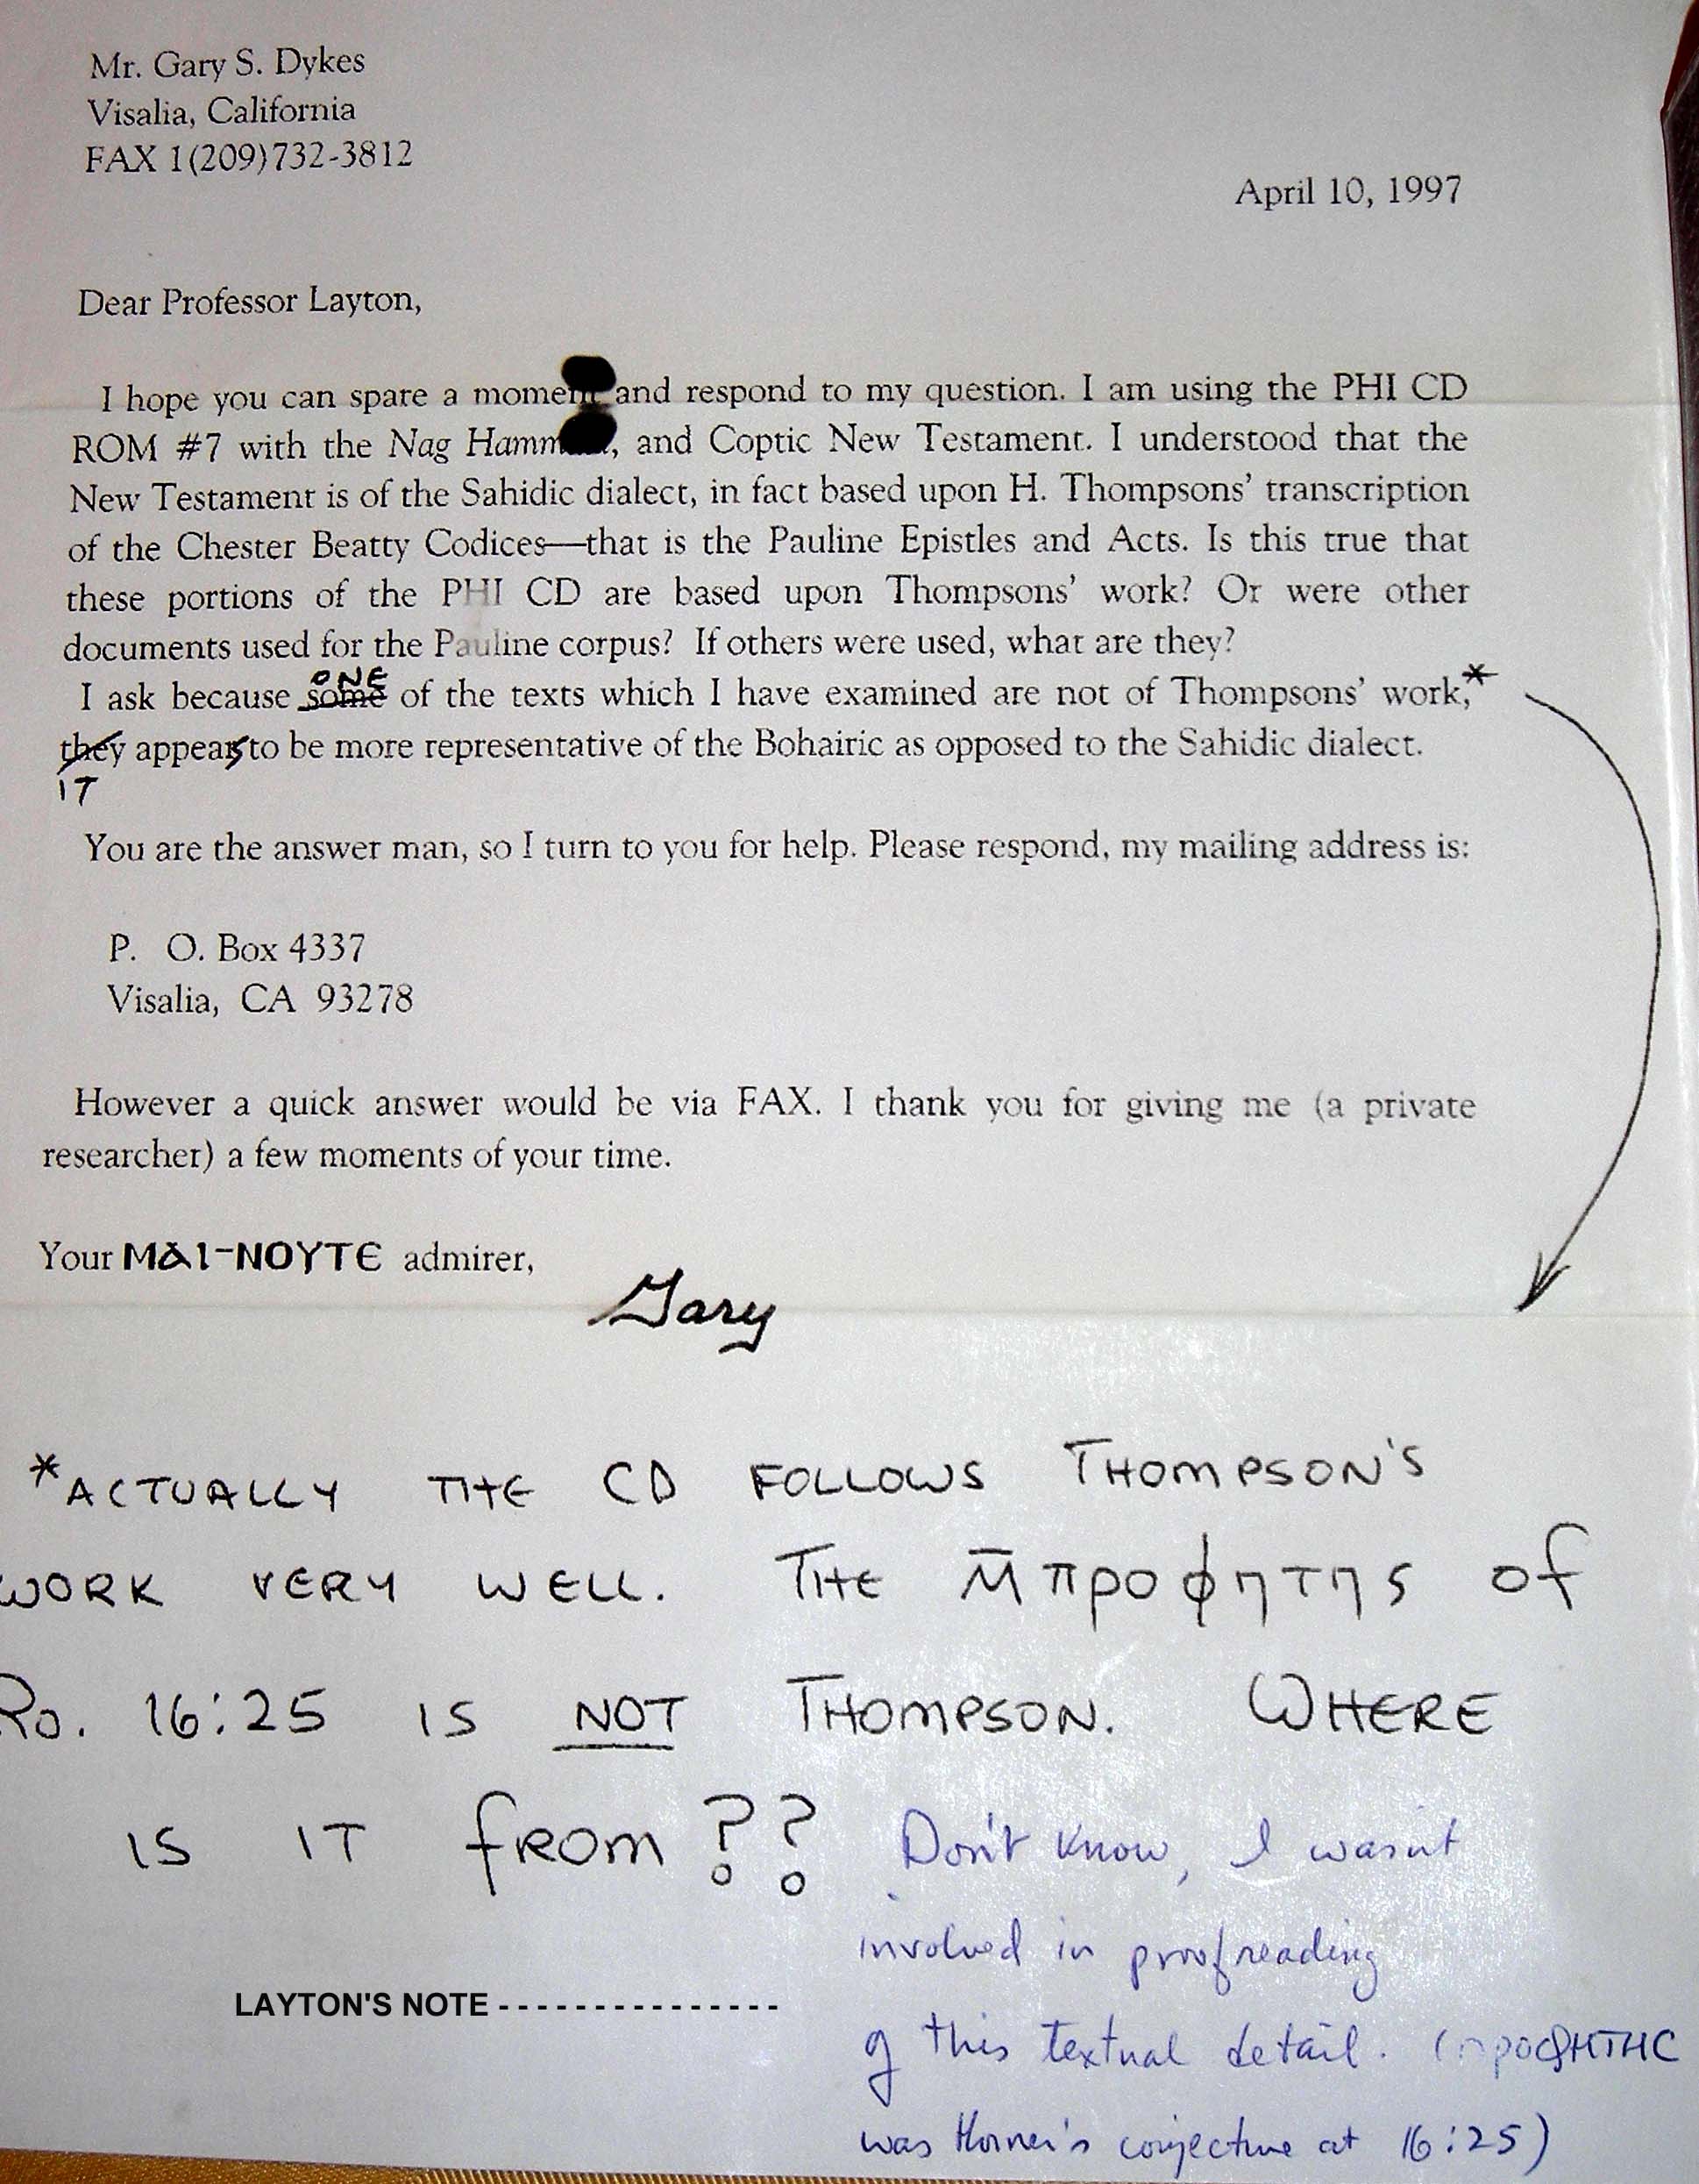 Mr. Gary S. Dykes
Visalia, California
FAX 1(209)732-3812
April 10, 1997
Dear Professor Layton,
I hope you can spare a moment and respond to my question. I am using the PHI CD
ROM #7 with the Nag Hamm, and Coptic New Testament. I understood that the
New Testament is of the Sahidic dialect, in fact based upon H. Thompsons’ transcription
of the Chester Beatty Codices—that is the Pauline Epistles and Acts. Is this true that
these portions of the PHI CD are based upon Thompsons’ work? Or were other
documents used for the Pauline corpus? If others were used, what are they?
ONE
I ask because some of the texts which I have examined are not of Thompsons’ work,*
they appears to be more representative of the Bohairic as opposed to the Sahidic dialect.
IT
You are the answer man, so I turn to you for help. Please respond, my mailing address is:
P. O. Box 4337
Visalia, CA 93278
However a quick answer would be via FAX. I thank you for giving me (a private
researcher) a few moments of your time.
Your ⲘⲀⲒ-ⲚⲞⲨⲦⲈ admirer,
Gary
*ACTUALLY THE CD FOLLOWS THOMPSON'S
WORK VERY WELL. THE M̄προφητης of
Ro. 16:25 IS NOT THOMPSON. WHERE
IS IT fROM??
Don't know, I wasn't
involved in proofreading
of this textual detail. (ⲡⲣⲟⲫⲏⲧⲏⲥ
was Horner's conjecture at 16:25)
LAYTON'S NOTE - - - - - - - - - - - - - - -